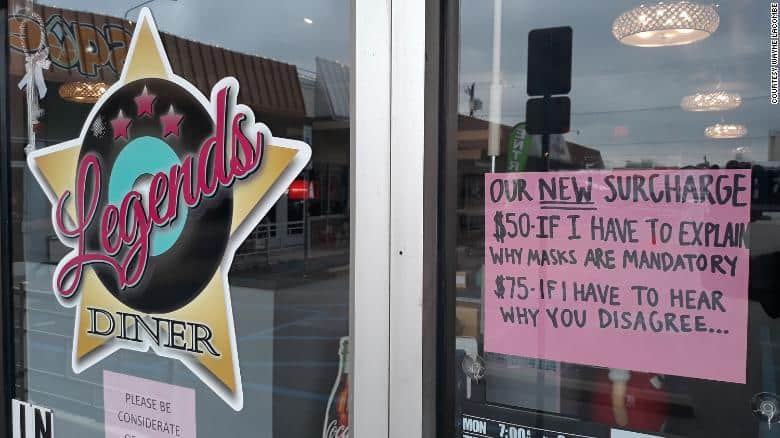 Legends
DINER
PLEASE BE
CONSIDERATE
IN
OUR NEW SURCHARGE
$50-IF I HAVE TO EXPLAIN
WHY MASKS ARE MANDATORY
$75-IF I HAVE TO HEAR
WHY YOU DISAGREE...
MON 7:00
COURTESY WAYNE LACOMBE